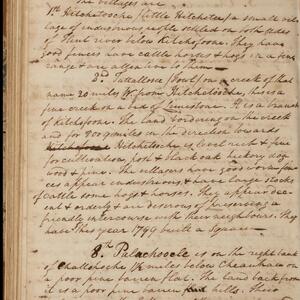 The villages are
1st Hitchetoochee (little Hitchetee) a small vil
lage of industrious people settled on both sides
of Flint river below Kitchofoone. They have
good fences have cattle horses & hogs in a fine
range & are attentive to them
2nd Tuttallosse Fowl on a creek of that
name 20 miles W from Hitchetooche, this is a
fine creek on a bed of limestone. It is a branch
of Kitchofoone. The land bordering on the creek
and for 8 or 9 miles in the direction towards
Hitchetooche is level rich & fine
for cultivation, post & black oak hickory dog
wood & pine. The villagers have good worm fen
ces appear industrious & have large stocks
of Cattle some hogs & horses. They appear decent
& orderly & are desirous of preserving a
friendly intercourse with their neighbours. They
have this year 1799 built a Square
8th Palachooole is on the right bank
of Chattohoche 1½ miles below Cheauhau on
a poor pine barren flat. The land back from
it is a poor pine barren hills. There